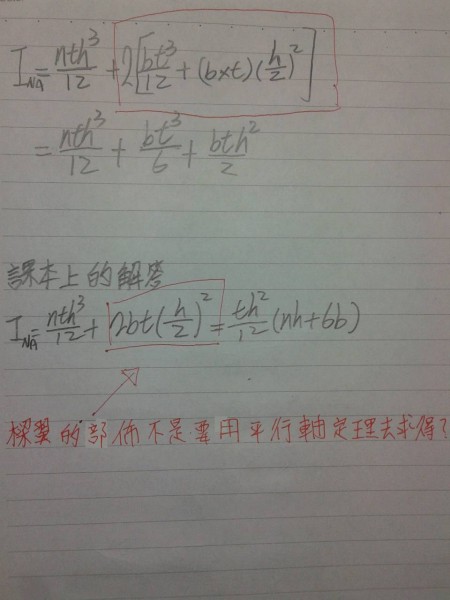 I_NA = nth³/12 + 2[bt³/12 + (b×t)(h/2)²]
= nth³/12 + bt³/6 + bth²/2
課本上的解答
I_NA = nth³/12 + 2bt(h/2)² = th²/12 (nh+6b)
樑翼的部佈不是要用平行軸定理去求得?